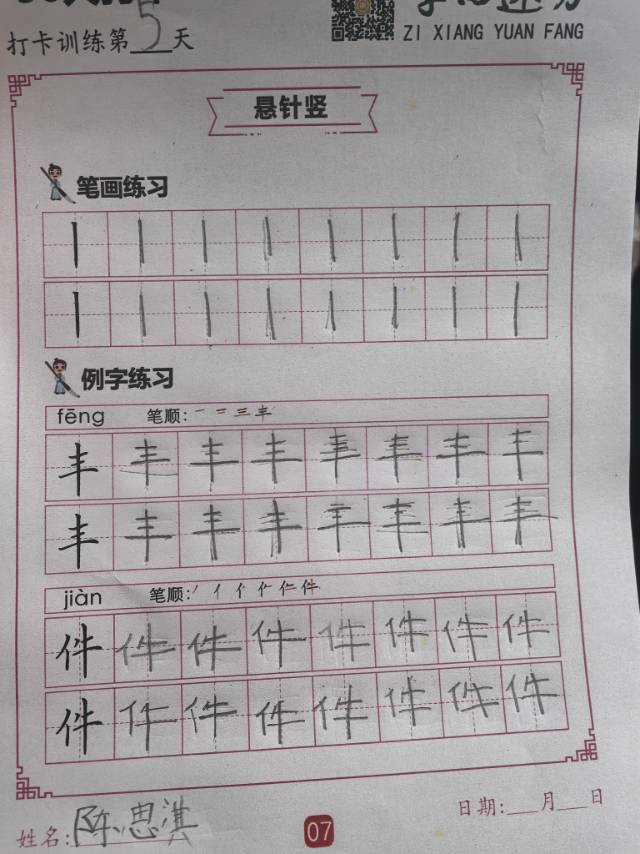 打卡训练第5天
ZI XIANG YUAN FANG
悬针竖
笔画练习
丨 丨 丨 丨 丨 丨 丨 丨
丨 丨 丨 丨 丨 丨 丨 丨
例字练习
fēng 笔顺: 一 二 三 丰
丰 丰 丰 丰 丰 丰 丰 丰
丰 丰 丰 丰 丰 丰 丰 丰
jiàn 笔顺: 丿 亻 亻 仁 件
件 件 件 件 件 件 件 件
件 件 件 件 件 件 件 件
姓名: 陈思淇
07
日期:___月___日